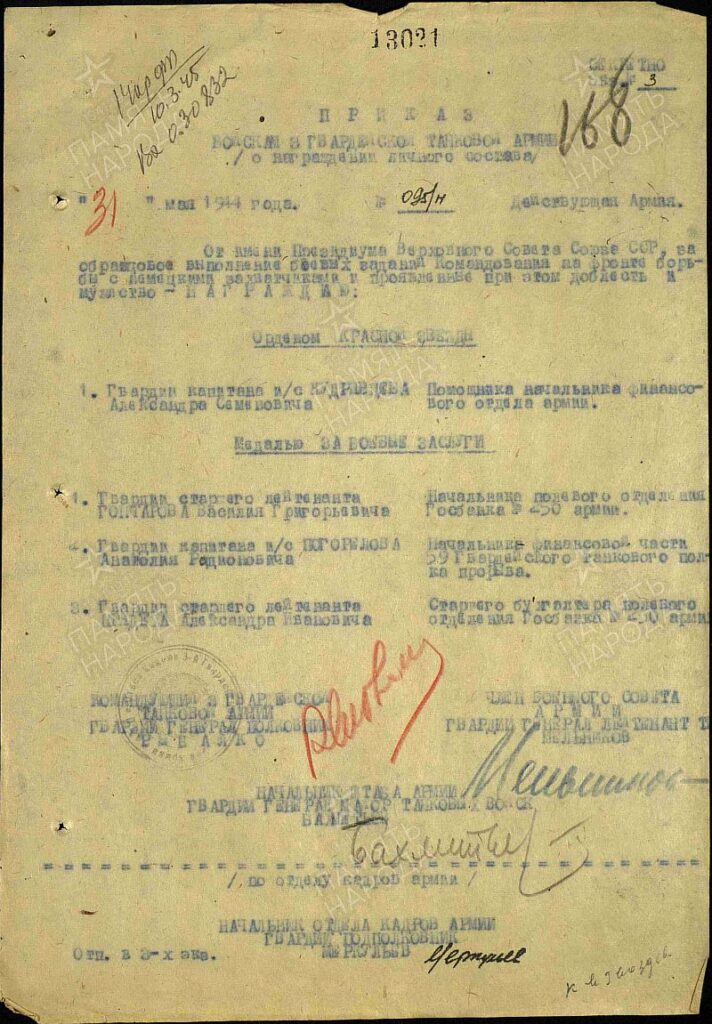 13021
СЕКРЕТНО
Экз.№ 3
10.3.45
168
П Р И К А З
ВОЙСКАМ 3 ГВАРДЕЙСКОЙ ТАНКОВОЙ АРМИИ
/ о награждении личного состава/
" 31 " мая 1944 года. № 095/н Действующая Армия.
От имени Президиума Верховного Совета Союза ССР, за
образцовое выполнение боевых заданий Командования на фронте борь-
бы с немецкими захватчиками и проявленные при этом доблесть и
мужество - Н А Г Р А Ж Д А Ю:
Орденом КРАСНОЙ ЗВЕЗДЫ
1. Гвардии капитана и/с Помощника начальника финансо-
Александра Семеновича вого отдела армии.
Медалью ЗА БОЕВЫЕ ЗАСЛУГИ
1. Гвардии старшего лейтенанта Начальника полевого отделения
ГОНТАРОВА Василия Григорьевича Госбанка № 450 армии.
2. Гвардии капитана и/с ПОГОРЕЛОВА Начальника финансовой части
Анатолия Родионовича 59 Гвардейского Танкового пол-
ка прорыва.
3. Гвардии старшего лейтенанта Старшего бухгалтера полевого
Александра Ивановича отделения Госбанка № 450 армии
КОМАНДУЮЩИЙ 3 ГВАРДЕЙСКОЙ ЧЛЕН ВОЕННОГО СОВЕТА
ТАНКОВОЙ АРМИИ А Р М И И
ГВАРДИИ ГЕНЕРАЛ ПОЛКОВНИК ГВАРДИИ ГЕНЕРАЛ ЛЕЙТЕНАНТ Т
Р Ы Б А Л К О МЕЛЬНИКОВ
НАЧАЛЬНИК ШТАБА АРМИИ
ГВАРДИИ ГЕНЕРАЛ МАЙОР ТАНКОВЫХ ВОЙСК
/ по отделу кадров армии /
НАЧАЛЬНИК ОТДЕЛА КАДРОВ АРМИИ
ГВАРДИИ ПОДПОЛКОВНИК
Отп. в 3-х экз. МЕРКУЛЬЕВ
ПАМЯТЬ НАРОДА